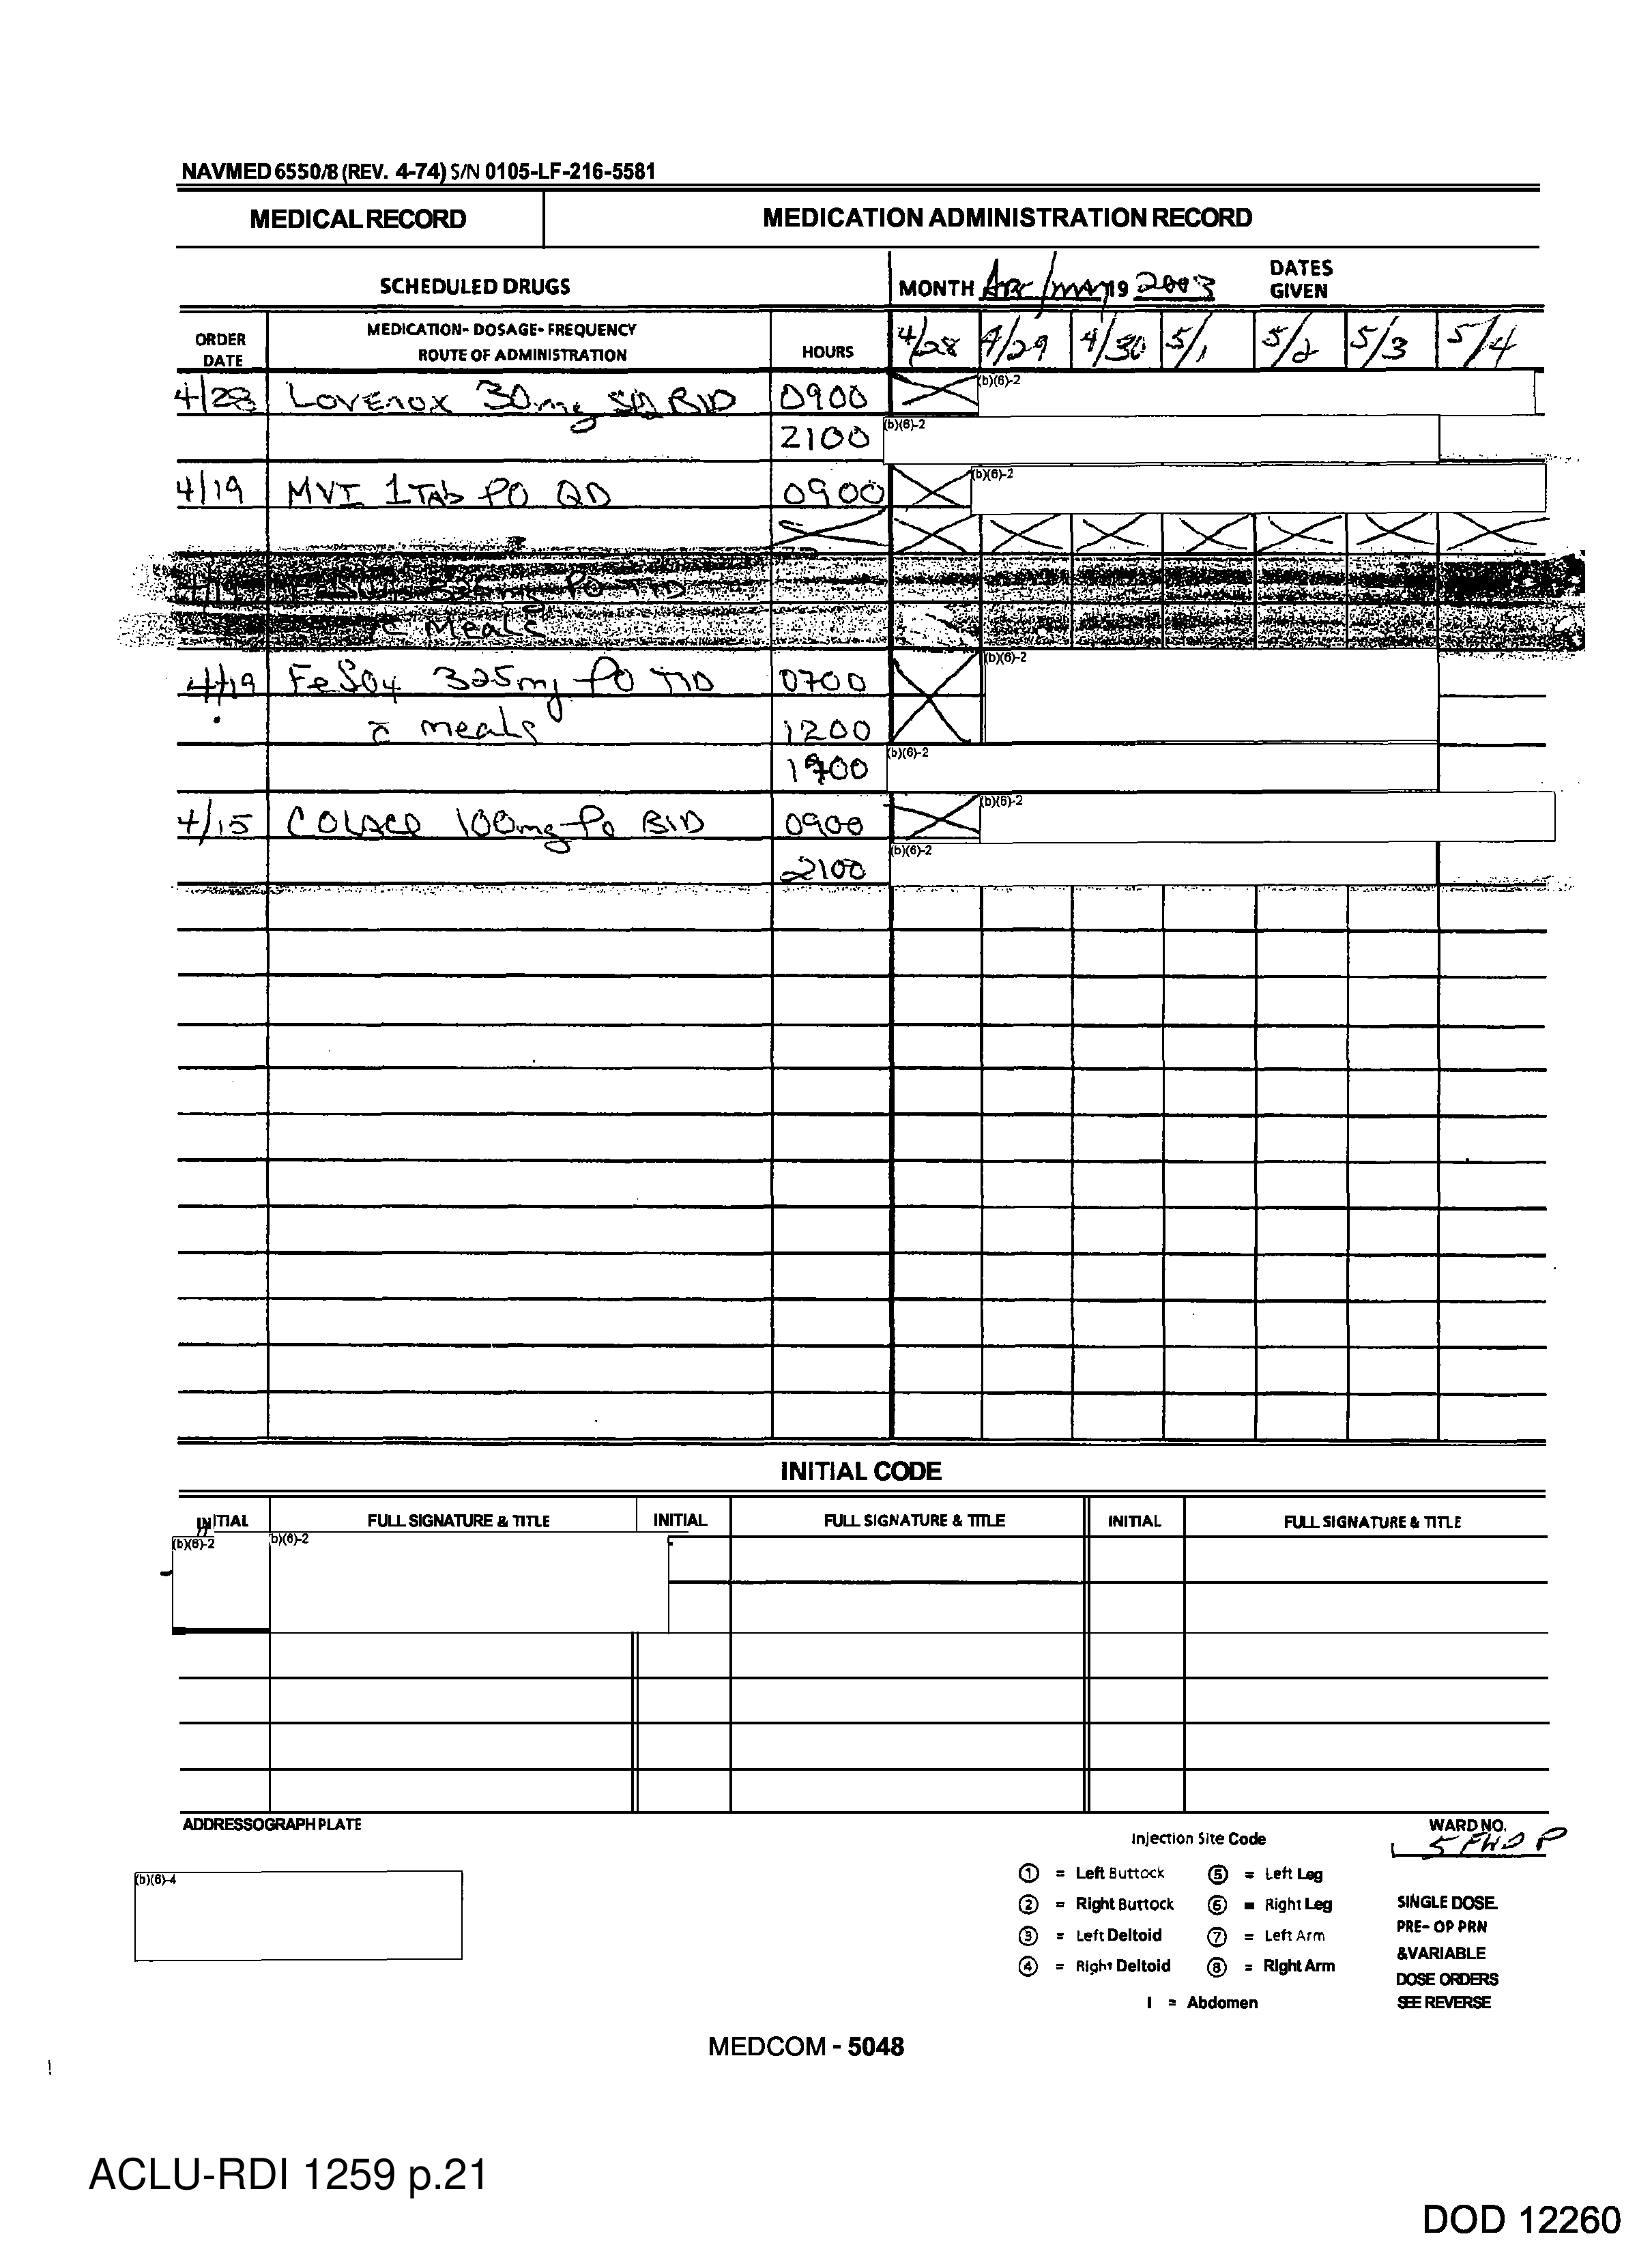 NAVMED 6550/8 (REV. 4-74) S/N 0105-LF-216-5581
MEDICAL RECORD MEDICATION ADMINISTRATION RECORD
SCHEDULED DRUGS MONTH Apr/May 19 2003 DATES GIVEN
ORDER DATE MEDICATION- DOSAGE- FREQUENCY ROUTE OF ADMINISTRATION HOURS 4/28 4/29 4/30 5/1 5/2 5/3 5/4
4/28 Lovenox 30mg SQ BID 0900 (b)(6)-2
2100 (b)(6)-2
4/19 MVI 1 Tab PO QD 0900 (b)(6)-2
4/19 325mg PO TID
c̄ Meals
4/19 FeSO4 325mg PO TID 0700 (b)(6)-2
c̄ meals 1200
1700 (b)(6)-2
4/15 COLACE 100mg Po BID 0900 (b)(6)-2
2100 (b)(6)-2
INITIAL CODE
INITIAL FULL SIGNATURE & TITLE INITIAL FULL SIGNATURE & TITLE INITIAL FULL SIGNATURE & TITLE
(b)(6)-2 b)(6)-2
ADDRESSOGRAPH PLATE
(b)(6)-4
Injection Site Code
① = Left Buttock ⑤ = Left Leg
② = Right Buttock ⑥ = Right Leg
③ = Left Deltoid ⑦ = Left Arm
④ = Right Deltoid ⑧ = Right Arm
I = Abdomen
WARD NO.
5 FWD P
SINGLE DOSE
PRE- OP PRN
&VARIABLE
DOSE ORDERS
SEE REVERSE
MEDCOM - 5048
ACLU-RDI 1259 p.21
DOD 12260